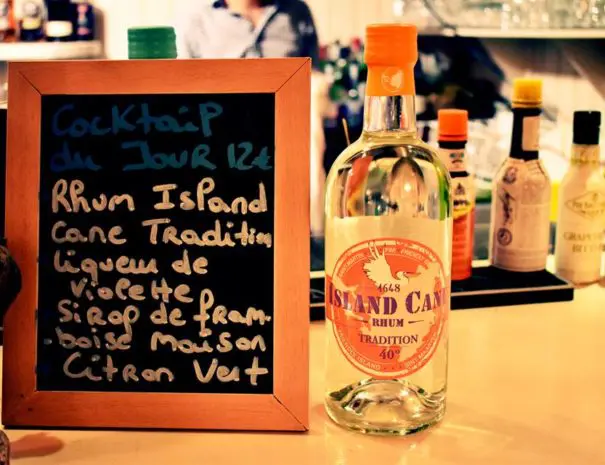 Cocktail
du Jour 12€
Rhum Island
Cane Tradition
Liqueur de
Violette
Sirop de fram-
boise maison
Citron Vert
1648
ISLAND CANE
RHUM
TRADITION
40°